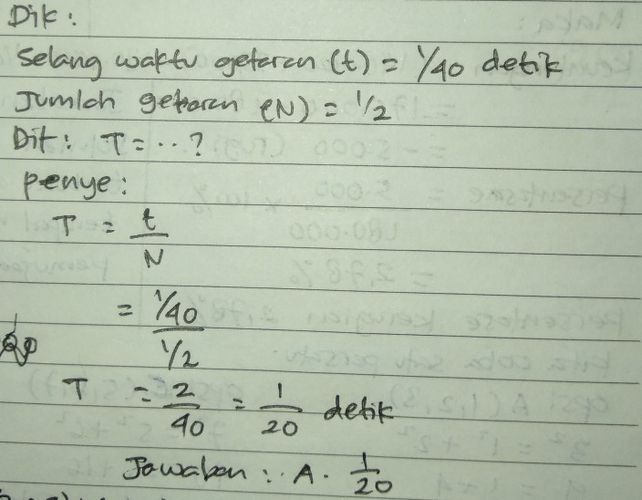 Dik :
Selang waktu getaran (t) = 1/40 detik
Jumlah getaran (N) = 1/2
Dit : T = ... ?
Penye :
T = t/N
= 1/40 / 1/2
T = 2/40 = 1/20 detik
Jawaban : A. 1/20